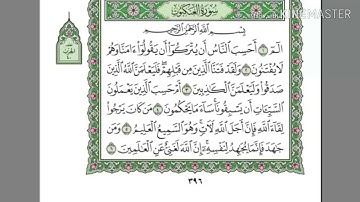 سُورَةُ العَنكَبُوتِ
بِسْمِ اللَّهِ الرَّحْمَٰنِ الرَّحِيمِ
الٓمٓ ۝١ أَحَسِبَ النَّاسُ أَن يُتْرَكُوٓا۟ أَن يَقُولُوٓا۟ ءَامَنَّا وَهُمْ
لَا يُفْتَنُونَ ۝٢ وَلَقَدْ فَتَنَّا الَّذِينَ مِن قَبْلِهِمْ فَلَيَعْلَمَنَّ اللَّهُ الَّذِينَ
صَدَقُوا۟ وَلَيَعْلَمَنَّ الْكَٰذِبِينَ ۝٣ أَمْ حَسِبَ الَّذِينَ يَعْمَلُونَ
السَّيِّـَٔاتِ أَن يَسْبِقُونَا سَآءَ مَا يَحْكُمُونَ ۝٤ مَن كَانَ يَرْجُوا۟
لِقَآءَ اللَّهِ فَإِنَّ أَجَلَ اللَّهِ لَـَٔاتٍ وَهُوَ السَّمِيعُ الْعَلِيمُ ۝٥ وَمَن
جَٰهَدَ فَإِنَّمَا يُجَٰهِدُ لِنَفْسِهِۦٓ إِنَّ اللَّهَ لَغَنِىٌّ عَنِ الْعَٰلَمِينَ ۝٦
٣٩٦
KINEMASTER